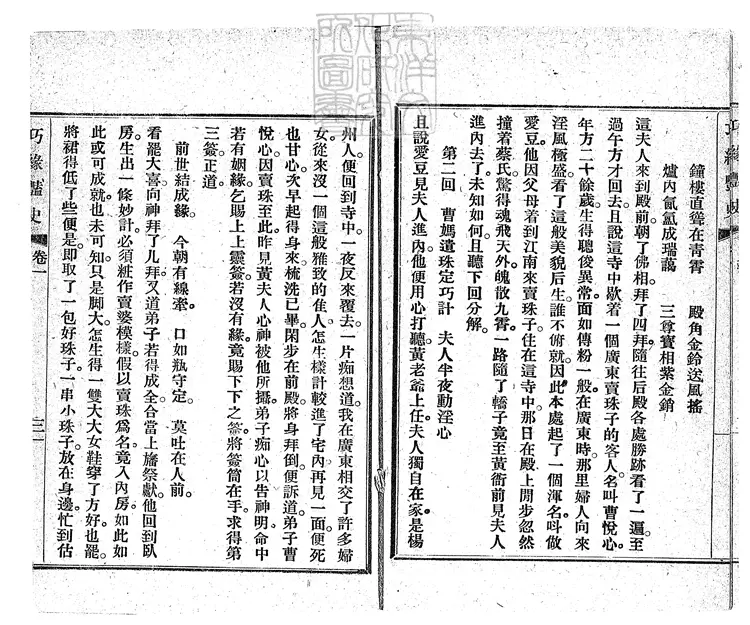 鐘樓直聳在青霄　殿角金鈴送風搖
爐內氤氳成瑞藹　三尊寶相紫金銷
這夫人來到殿前朝了佛。相拜了四拜。隨往后殿各處勝跡看了一遍。至
過午方才回去。且說這寺中歇着一個廣東賣珠子的客人。名叫曹悅心。
年方二十餘歲。生得聰俊異常。面如傅粉一般。在廣東時。那里婦人向來
淫風極盛。看了這般美貌后生。誰不俯就。因此本處起了一個渾名。叫做
愛豆。他因父母着到江南來賣珠子。住在這寺中。那日在殿上閒步忽然
撞着蔡氏。驚得魂飛天外。魄散九霄。一路隨了轎子竟至黃衙前見夫人
進內去了。未知如何。且聽下回分解。
第二回　曹媽遺珠定巧計　夫人半夜動淫心
且說愛豆見夫人進內。他便用心打聽。黃老爺上任。夫人獨自在家。是楊
州人。便回到寺中。一夜反來覆去。一片痴想道。我在廣東相交了許多婦
女。從來沒一個這般雅致的佳人。怎生樣計較進了宅內。再見一面。便死
也甘心。次早起得身來。梳洗已畢。閑步在前殿。將身拜倒。便訴道。弟子曹
悅心。因賣珠至此。昨見黃夫人。心神被他所攝。弟子痴心以告神明。命中
若有姻緣。乞賜上上靈簽。若沒有緣。竟賜下下之簽。將簽筒在手。求得第
三簽正道
前世結成緣。　今朝有線牽。　口如瓶守定。　莫吐在人前。
看罷大喜。向神拜了几拜。又道弟子若得成。全合當上旛祭獻。他回到臥
房。生出一條妙計。必須粧作賣婆模樣。假以賣珠爲名。竟入內房。如此如
此。或可成就。也未可知。只是脚大。怎生得一雙大大女鞋穿了方好。也罷。
將裙得低了些便是。即取了一包好珠子。一串小珠子放在身邊。忙到估
巧緣豔史
卷一
三
巧緣豔史